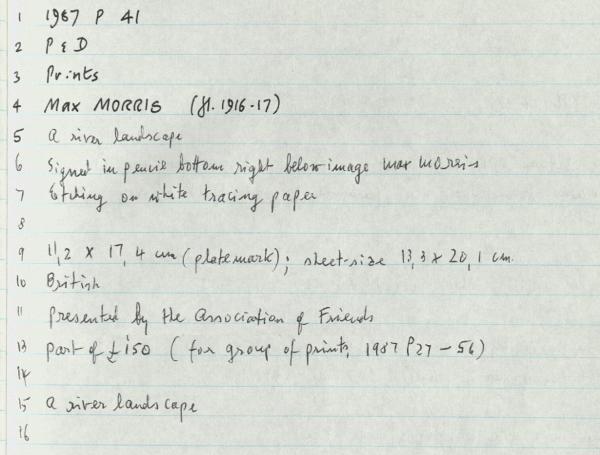 1 1987 P 41
2 P & D
3 Prints
4 Max MORRIS (fl. 1916-17)
5 A river landscape
6 Signed in pencil bottom right below image Max Morris
7 Etching on white tracing paper
8
9 11,2 x 17,4 cm (platemark); sheet-size 13,3 x 20,1 cm.
10 British
11 Presented by the Association of Friends
13 part of £150 (for group of prints, 1987 P27 - 56)
14
15 A river landscape
16